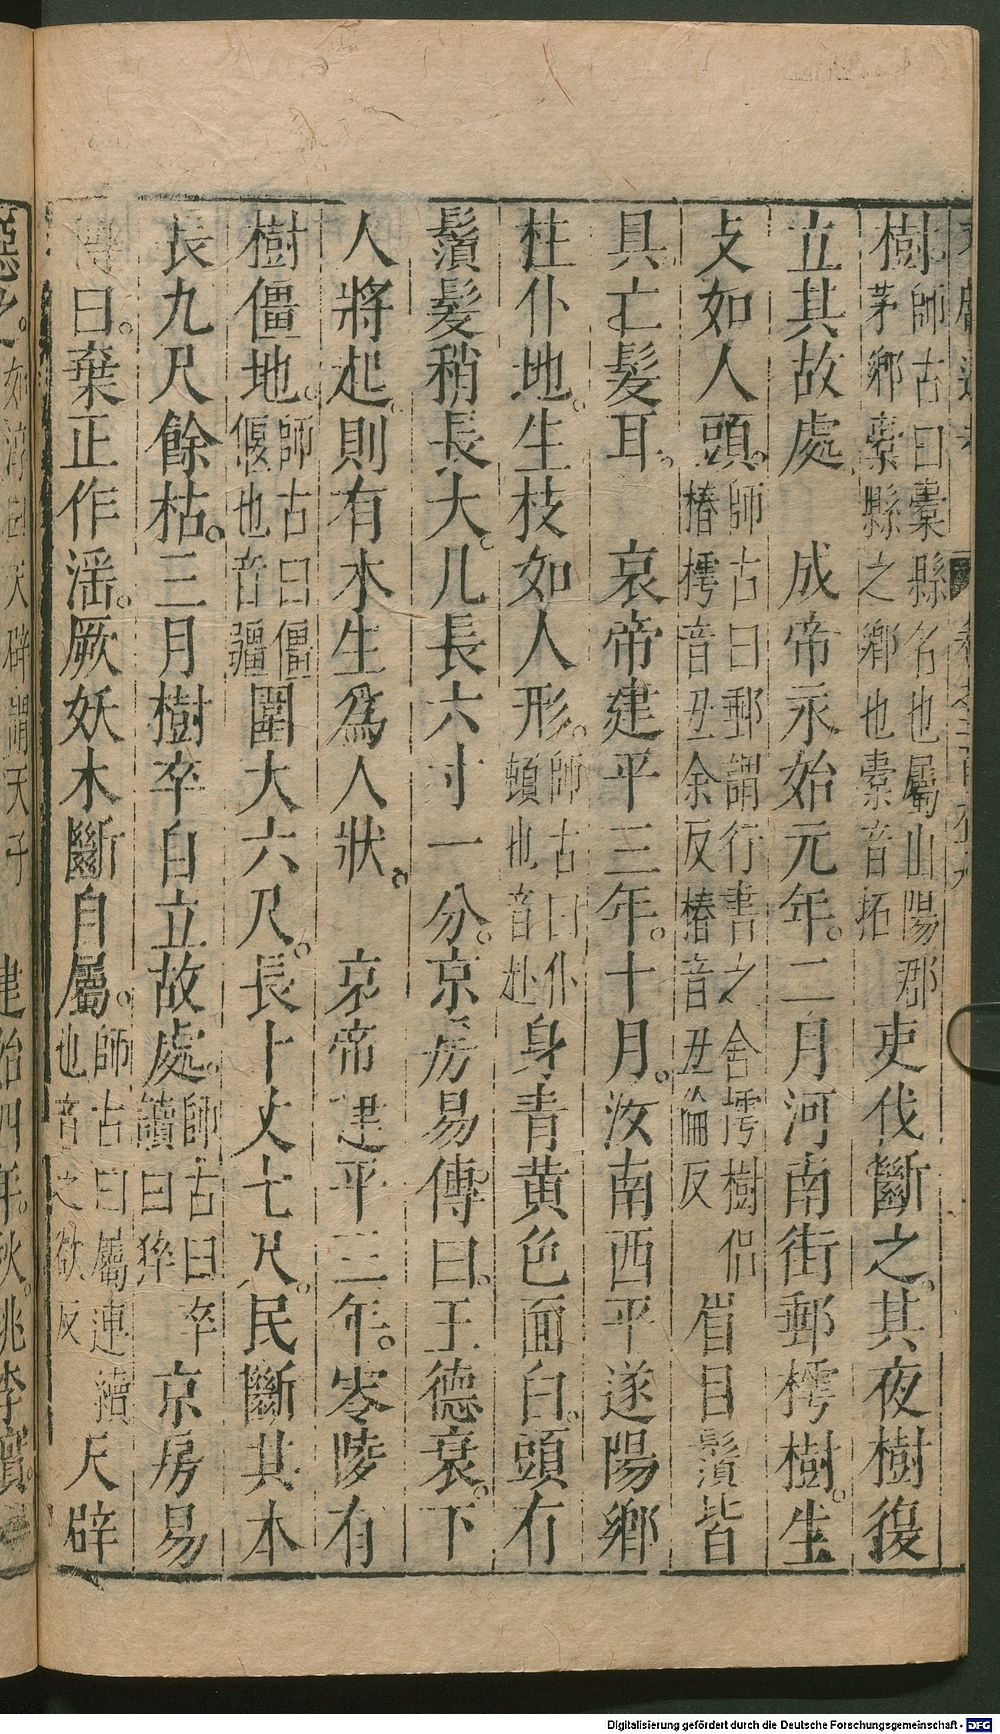 樹師古曰橐縣名也屬山陽郡茅鄉橐縣之鄉也橐音拓吏伐斷之。其夜樹復
立其故處　成帝永始元年。二月河南街郵樗樹。生
支如人頭。師古曰郵謂行書之舍樗樹侣椿樗音丑余反椿音丑倫反眉目鬚皆
具。亡髮耳。　哀帝建平三年。十月。汝南西平遂陽鄉
柱仆地。生枝如人形。師古曰仆頓也音赴身青黄色面白。頭有
鬚髮稍長大。凡長六寸一分。京房易傳曰。王德衰。下
人將起。則有木生爲人狀。　哀帝建平三年。零陵有
樹僵地。師古曰僵偃也音疆圍大六尺。長十丈七尺。民斷其本
長九尺餘枯。三月樹卒自立故處。師古曰卒讀曰猝京房易
傳曰。棄正作滛。厥妖木斷自屬。師古曰屬連續也音之欲反天辟
惡之。如淳曰天辟謂天子　建始四年。秋。桃李實。
Digitalisierung gefördert durch die Deutsche Forschungsgemeinschaft - DFG